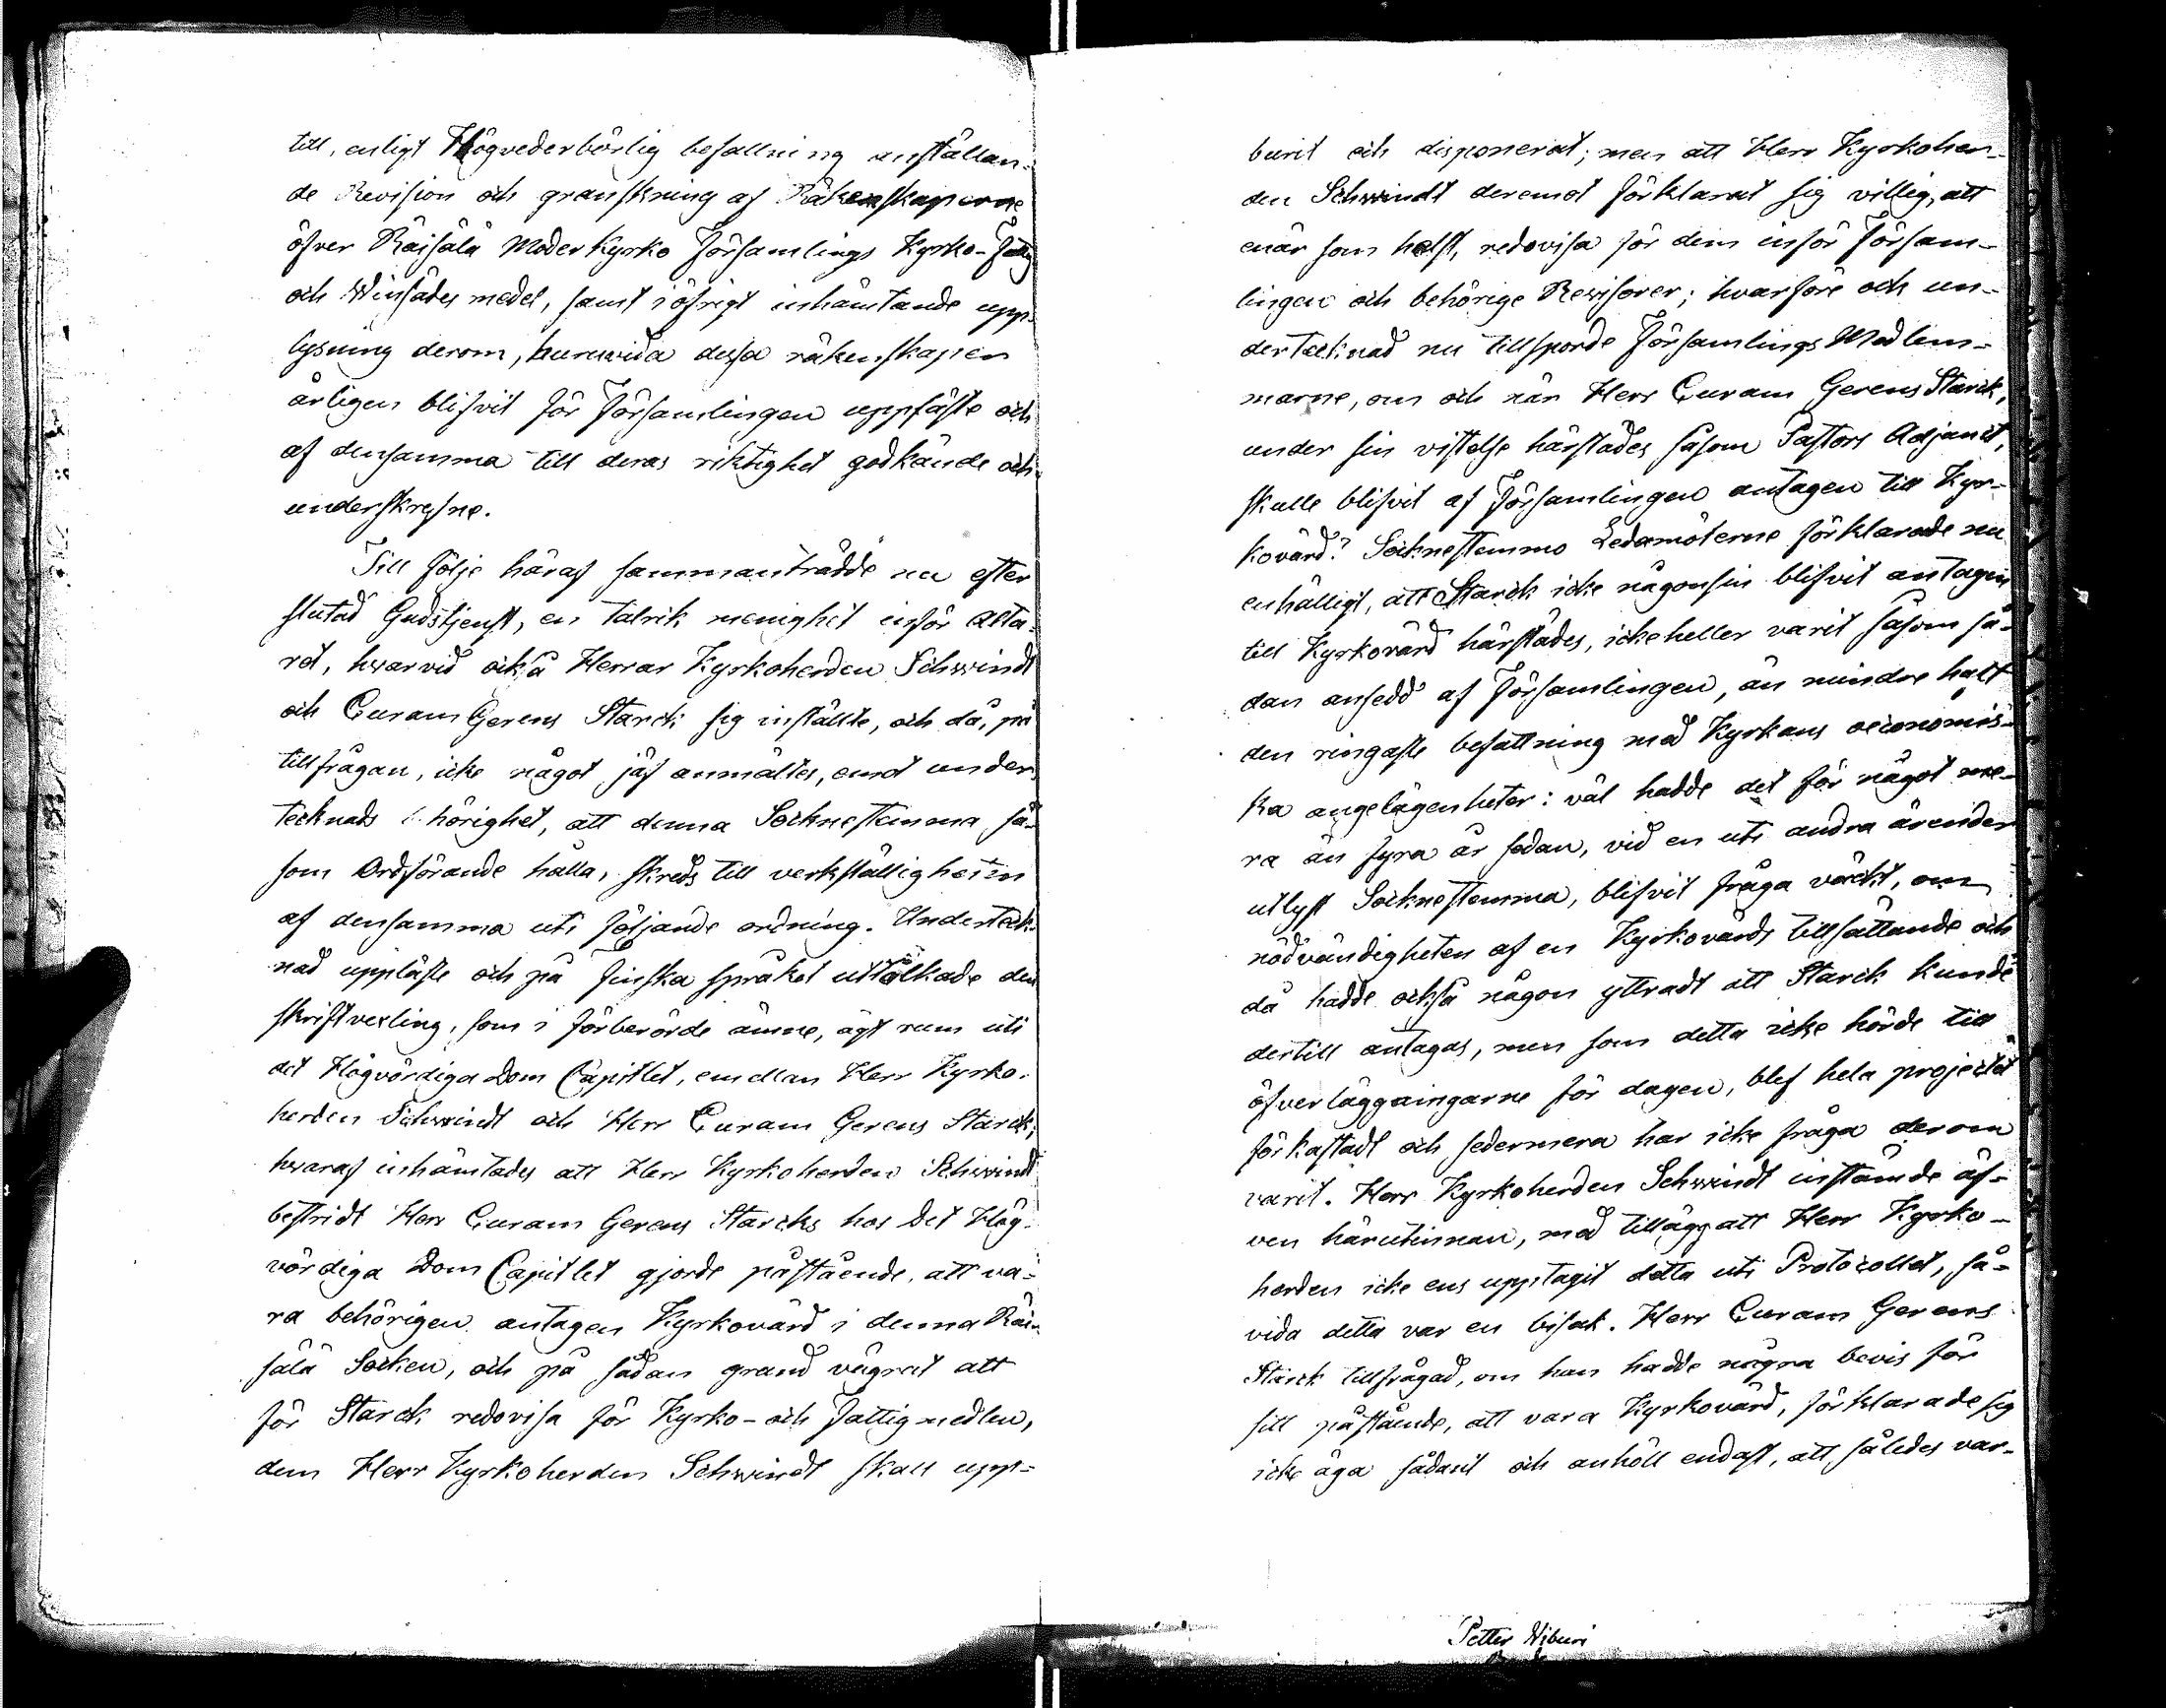 till, enligt Högvederbörlig befallning anställan-
de Revision och granskning af Räkenskaperne
öfver Räisälä Moderkyrko Församlings Kyrko-Fattig
och Winsädes medel, samt i öfrigt inhämtande upp-
lysning derom, huruvida dessa räkenskapen
årligen blifvit för Församlingen uppläste och
af densamma till deras riktighet godkände och
underskrefne.
Till följe häraf sammanträdde nu efter
slutad Gudstjenst, en talrik menighet inför Alta-
ret, hvarvid också Herrar Kyrkoherden Schwindt
och Curam Gerens Starck sig inställte, och då, på
tillfrågan, icke något jäf anmältes, emot under-
tecknads behörighet, att denna Socknestemma så-
som Ordförande hålla, skreds till verkställigheten
af densamma uti följande ordning. Underteck-
nad uppläste och på Finska språket uttålkade den
skriftvexling, som i förberörde ämne, ägt rum uti
det Högvördiga Dom Capitlet, emellan Herr Kyrko-
herden Schwindt och Herr Curam Gerens Starck;
hvaraf inhämtades att Herr Kyrkoherden Schwindt
bestridt Herr Curam Gerens Starcks hos Det Hög-
vördiga Dom Capitlet gjorde påstående, att va-
ra behörigen antagen Kyrkovärd i denna Räi-
sälä Socken, och på sådan grund vägrat att
för Starck redovisa för Kyrko- och Fattigmedlen,
dem Herr Kyrkoherden Schwindt skall upp-
burit och disponerat; men att Herr Kyrkoher-
den Schwindt deremot förklarat sig villig, att
enär som helst, redovisa för dem inför Försam-
lingen och behörige Revisorer; hvarföre och un-
dertecknad nu tillsporde Församlings Medlem-
marne, om och när Herr Curam Gerens Starck,
under sin vistelse härstädes såsom Pastors Adjunct,
skulle blifvit af Församlingen antagen till Kyr-
kovärd? Socknestemmo Ledamöterne förklarade nu
enhälligt, att Starck icke någonsin blifvit antagen
till Kyrkovärd härstädes, icke heller varit såsom så-
dan ansedd af Församlingen, än mindre haft
den ringaste befattning med Kyrkans oeconomis-
ka angelägenheter: väl hadde det för något me-
ra än fyra år sedan, vid en uti andra ärender
utlyst Socknestemma, blifvit fråga väckt, om
nödvändigheten af en Kyrkovärds tillsättande och
då hadde också någon yttradt att Starck kunde
dertill antagas, men som detta icke hörde till
öfverläggningarne för dagen, blef hela projectet
förkastadt och sedermera har icke fråga derom
varit. Herr Kyrkoherden Schwindt instämde äf-
ven härutinnan, med tillägg att Herr Kyrko-
herden icke ens upptagit detta uti Protocollet, så-
vida detta var en bisak. Herr Curam Gerens
Starck tillfrågad, om han hadde några bevis för
sitt påstående, att vara Kyrkovärd, förklarade sig
icke äga sådant och anhöll endast, att således var-
Petter